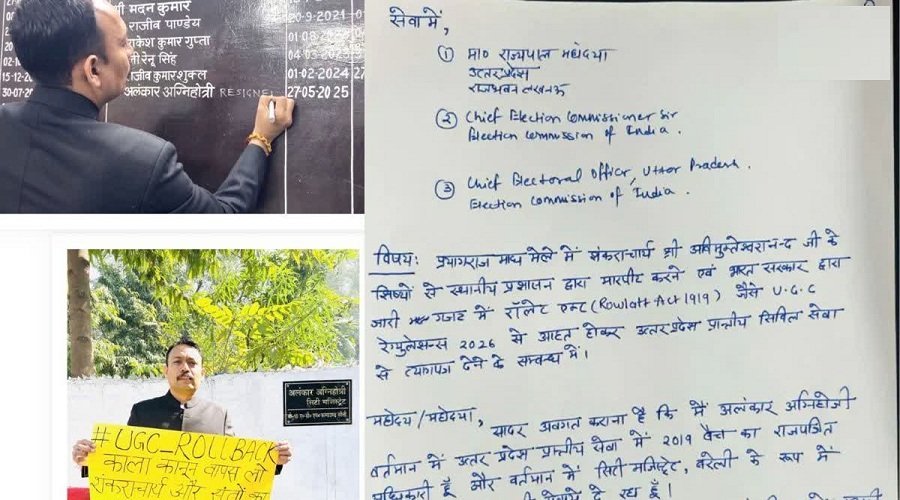 श्री मदन कुमार
राजीव पाण्डेय
20-9-2021
राकेश कुमार गुप्ता
रेनू सिंह
15-12-20
राजीव कुमार शुक्ल
01-02-2024
30-07-20
अलंकार अग्निहोत्री RESIGNE
27-05-2025
अलंकार अग्निहोत्री
सिटी मजिस्ट्रेट
#UGC_ROLLBACK
काला कानून वापस लो
शंकराचार्य और संतों का
सेवा में,
① मा० राज्यपाल महोदया
उत्तर प्रदेश
राजभवन लखनऊ
② Chief Election Commissioner Sir
Election Commission of India.
③ Chief Electoral Officer, Uttar Pradesh.
Election Commission of India.
विषय: प्रयागराज माघ मेले में शंकराचार्य श्री अविमुक्तेश्वरानन्द जी के
शिष्यों से स्थानीय प्रशासन द्वारा मारपीट करने एवं भारत सरकार द्वारा
जारी गजट में रॉलेट एक्ट (Rowlatt Act 1919) जैसे U.G.C
रेगुलेसन्स 2026 से आहत होकर उत्तर प्रदेश प्रान्तीय सिविल सेवा
से त्यागपत्र देने के सम्बन्ध में।
महोदय/महोदया,
सादर अवगत कराना है कि मैं अलंकार अग्निहोत्री
वर्तमान में उत्तर प्रदेश प्रान्तीय सेवा में 2019 बैच का राजपत्रित
अधिकारी हूँ और वर्तमान में सिटी मजिस्ट्रेट, बरेली के रूप में
दे रहा हूँ।